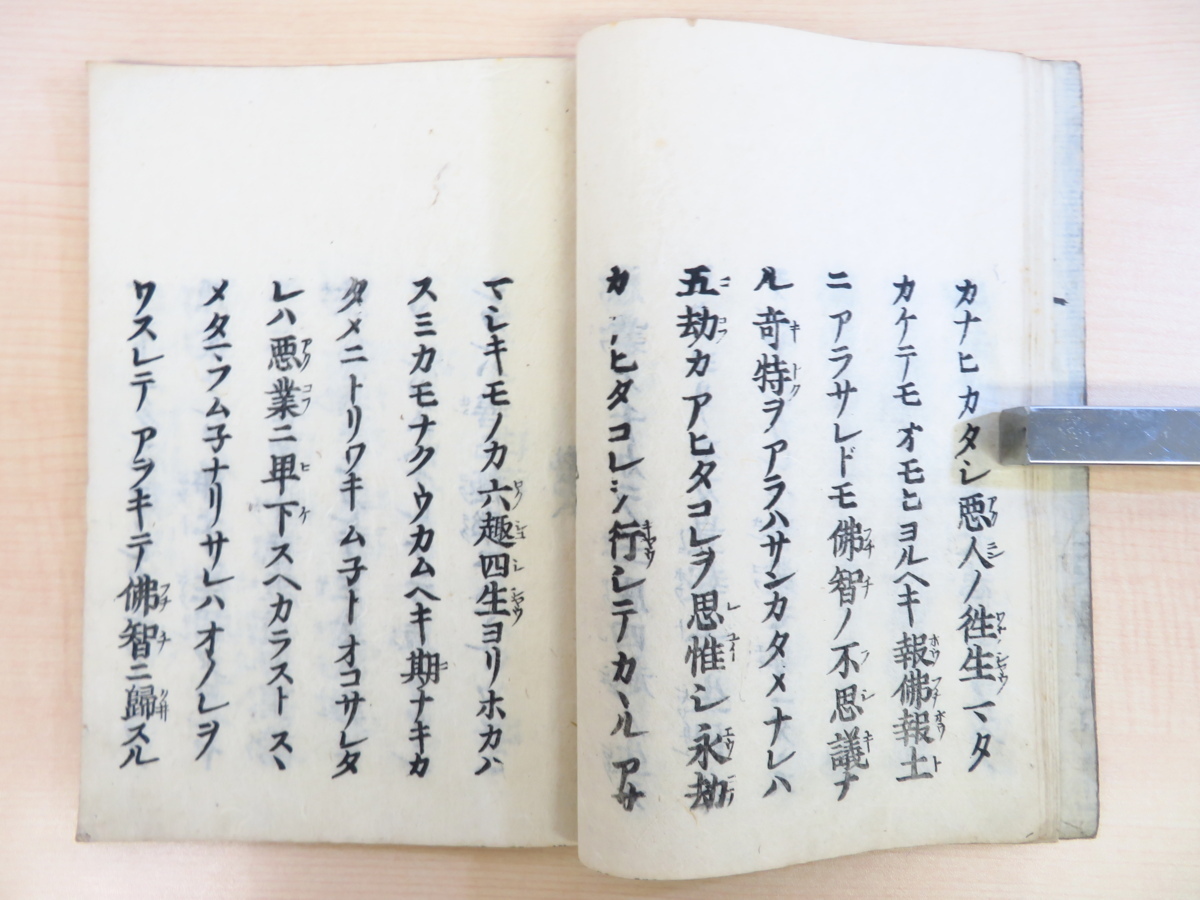 カナヒカタシ悪人ノ徃生マタ
カケテモオモヒヨルヘキ報佛報土
ニアラサレドモ佛智ノ不思議ナ
ル奇特ヲアラハサンカタメナレハ
五劫カアヒタコレヲ思惟シ永劫
カアヒタコレヲ行シテカヽルアサ
マシキモノカ六趣四生ヨリホカハ
スミカモナクウカムヘキ期ナキカ
タメニトリワキム子トオコサレタ
レハ悪業ニ卑下スヘカラストスヽ
メタマフム子ナリサレハオノレヲ
ワスレテアヲキテ佛智ニ歸スル